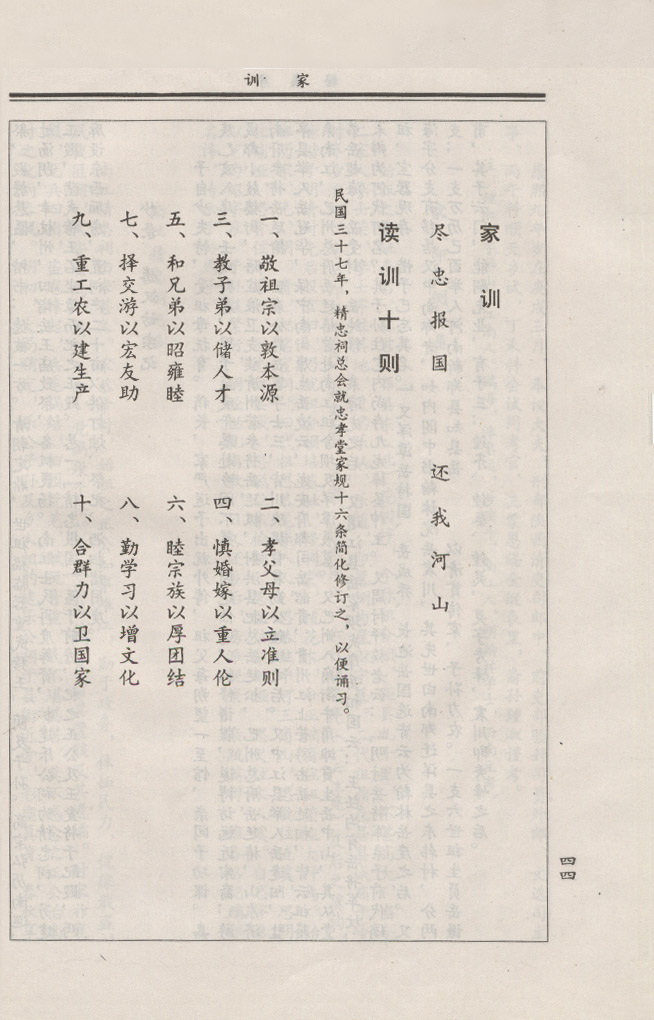 家训
家训
尽忠报国 还我河山
读训十则
民国三十七年，精忠祠总会就忠孝堂家规十六条简化修订之，以便诵习。
一、敬祖宗以敦本源 二、孝父母以立准则
三、教子弟以储人才 四、慎婚嫁以重人伦
五、和兄弟以昭雍睦 六、睦宗族以厚团结
七、择交游以宏友助 八、勤学习以增文化
九、重工农以建生产 十、合群力以卫国家
四四